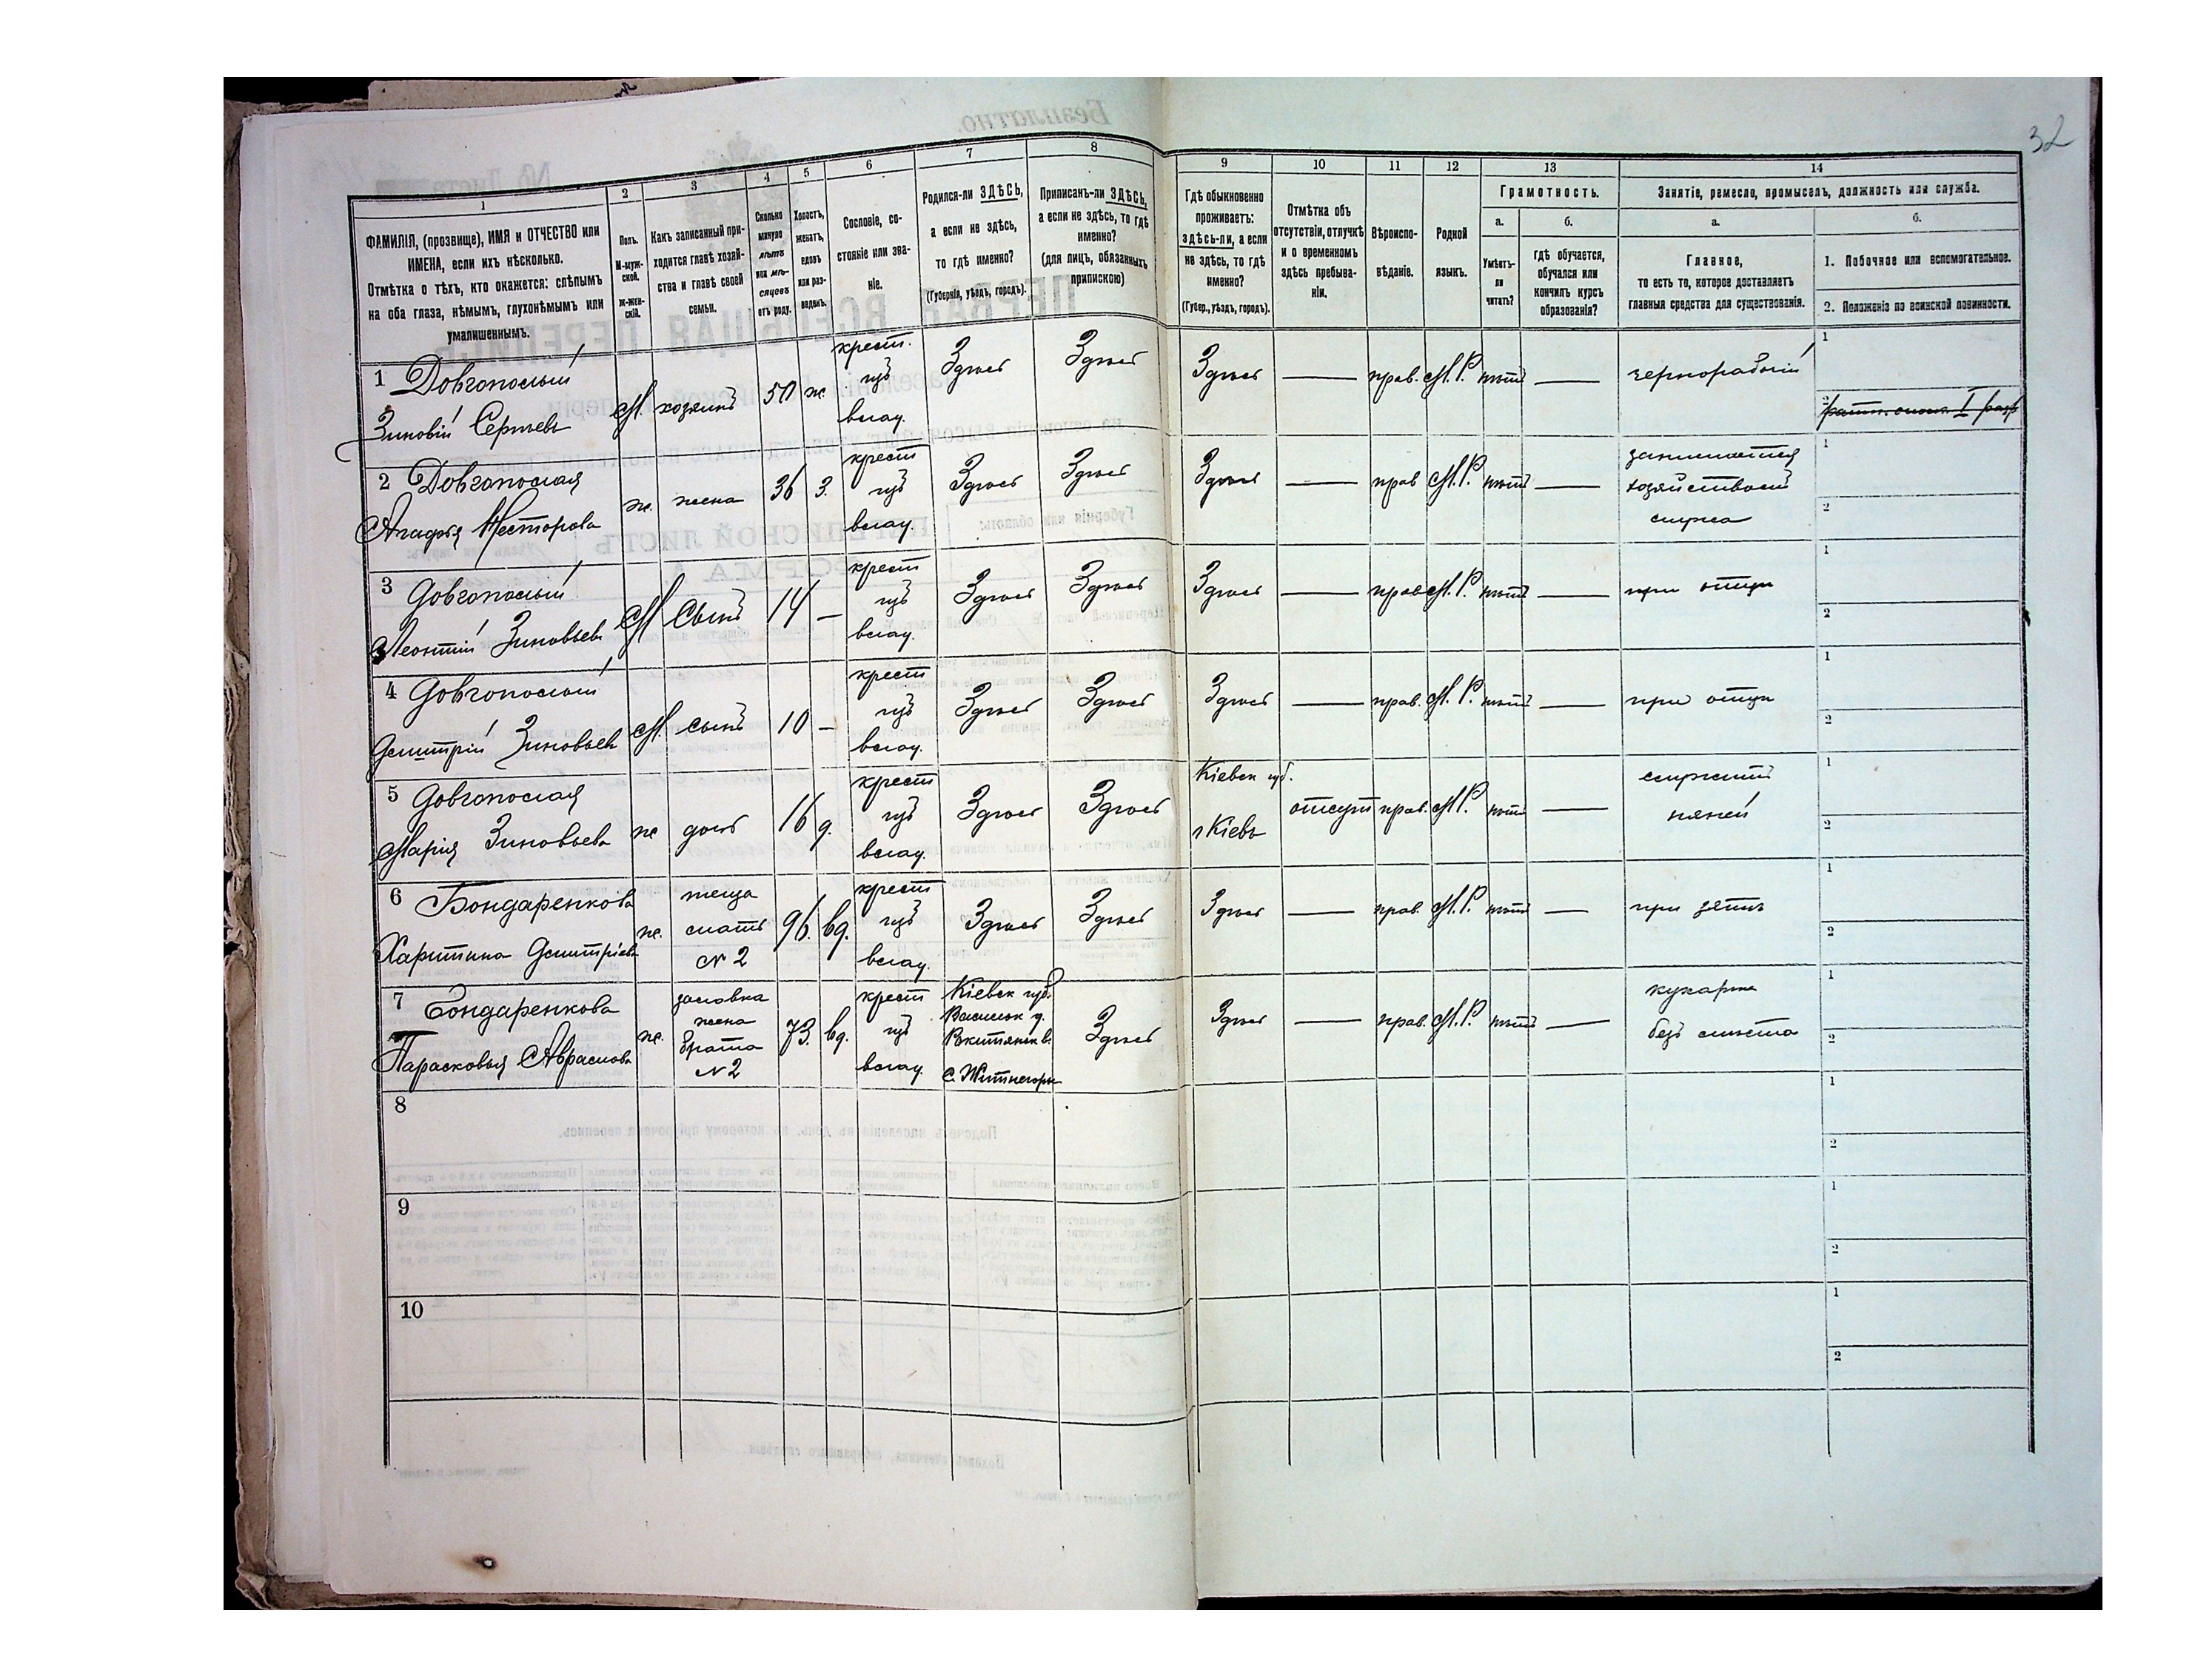 32
1 2 3 4 5 6 7 8 9 10 11 12 13 14
ФАМИЛІЯ, (прозвище), ИМЯ и ОТЧЕСТВО или
ИМЕНА, если ихъ нѣсколько.
Отмѣтка о тѣхъ, кто окажется: слѣпымъ
на оба глаза, нѣмымъ, глухонѣмымъ или
умалишеннымъ.
Полъ.
М-муж-
ской.
Ж-жен-
скій.
Какъ записанный при-
ходится главѣ хозяй-
ства и главѣ своей
семьи.
Сколько
минуло
лѣтъ
или мѣ-
сяцевъ
отъ роду.
Холостъ,
женатъ,
вдовъ
или раз-
веденъ.
Сословіе, со-
стояніе или зва-
ніе.
Родился-ли ЗДѢСЬ,
а если не здѣсь,
то гдѣ именно?
(Губернія, уѣздъ, городъ).
Приписанъ-ли ЗДѢСЬ,
а если не здѣсь, то гдѣ
именно?
(для лицъ, обязанныхъ
припискою)
Гдѣ обыкновенно
проживаетъ:
здѣсь-ли, а если
не здѣсь, то гдѣ
именно?
(Губер., уѣздъ, городъ).
Отмѣтка объ
отсутствіи, отлучкѣ
и о временномъ
здѣсь пребыва-
ніи.
Вѣроиспо-
вѣданіе.
Родной
языкъ.
Грамотность.
а.
Умѣетъ-
ли
читать?
б.
гдѣ обучается,
обучался или
кончилъ курсъ
образованія?
Занятіе, ремесло, промыселъ, должность или служба.
а.
Главное,
то есть то, которое доставляетъ
главныя средства для существованія.
б.
1. Побочное или вспомогательное.
2. Положеніе по воинской повинности.
1 Довгополый
Зиновій Сергѣевъ
М. хозяинъ 50 ж.
крест.
изъ
влад.
Здѣсь Здѣсь Здѣсь — прав. М.Р. нѣтъ — чернорабочій
1
2 ратн. опол. I разр
2 Довгополая
Агафья Несторова
ж. жена 36 З.
крест
изъ
влад.
Здѣсь Здѣсь Здѣсь — прав М.Р. нѣтъ —
занимается
хозяйствомъ
мужа
1
2
3 Довгополый
Леонтій Зиновьевъ
М Сынъ 14 —
крест
изъ
влад.
Здѣсь Здѣсь Здѣсь — прав М.Р. нѣтъ — при отцѣ
1
2
4 Довгополый
Дмитрій Зиновьевъ
М. сынъ 10 —
крест
изъ
влад.
Здѣсь Здѣсь Здѣсь — прав. М.Р. нѣтъ — при отцѣ
1
2
5 Довгополая
Марія Зиновьева
ж дочь 16 д.
крест
изъ
влад.
Здѣсь Здѣсь
Кіевск губ.
г Кіевъ
отсут прав. М.Р. нѣтъ —
служитъ
няней
1
2
6 Бондаренкова
Харитина Дмитріева
ж.
теща
мать
N 2
96. вд.
крест
изъ
влад.
Здѣсь Здѣсь Здѣсь — прав. М.Р. нѣтъ — при зятѣ
1
2
7 Бондаренкова
Парасковья Аврамова
ж.
золовка
жена
брата
N 2
73. вд.
крест
изъ
влад.
Кіевск губ.
Васильк у.
Ракитянск в.
с. Житнегоры
Здѣсь Здѣсь — прав. М.Р. нѣтъ —
кухарка
безъ мѣста
1
2
8
1
2
9
1
2
10
1
2